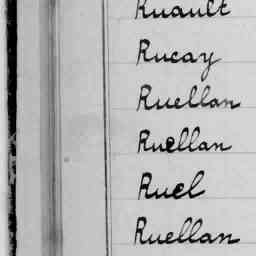 Ruault
Rucay
Ruellan
Ruellan
Ruel
Ruellan